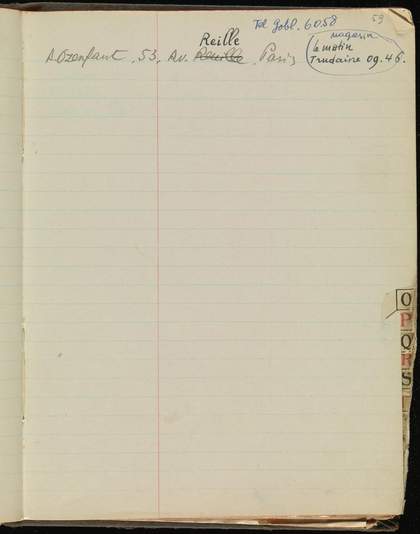 Tel Gobl. 60.58
59
Reille
magasin
le matin
Trudaine 09.46.
A Ozenfant, 53, Av. Reuille, Paris
O
P
Q
R
S